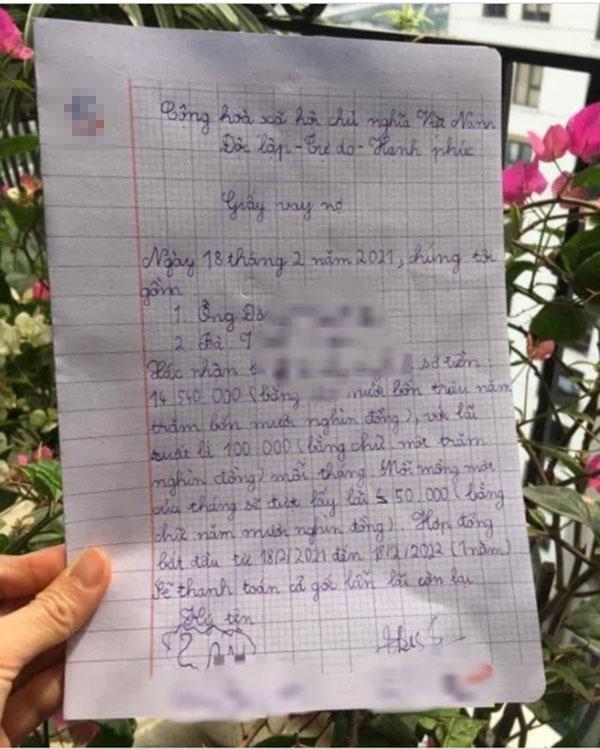 Công hoà xã hội chủ nghĩa Việt Nam
Độc lập - Tự do - Hạnh phúc
Giấy vay nợ
Ngày 18 tháng 2 năm 2021, chúng tôi
gồm
1. Ông Đỗ
2. Bà
Xác nhận số tiền
14 540 000 (bằng mười bốn triệu năm
trăm bốn mươi nghìn đồng), với lãi
suất là 100 000 (bằng chữ một trăm
nghìn đồng) mỗi tháng. Mỗi mồng một
của tháng sẽ được lấy lãi 50 000 (bằng
chữ năm mươi nghìn đồng). Hợp đồng
bắt đầu từ 18/2/2021 đến 18/2/2022 (1 năm)
Sẽ thanh toán cả gói lẫn lãi còn lại
Ký tên